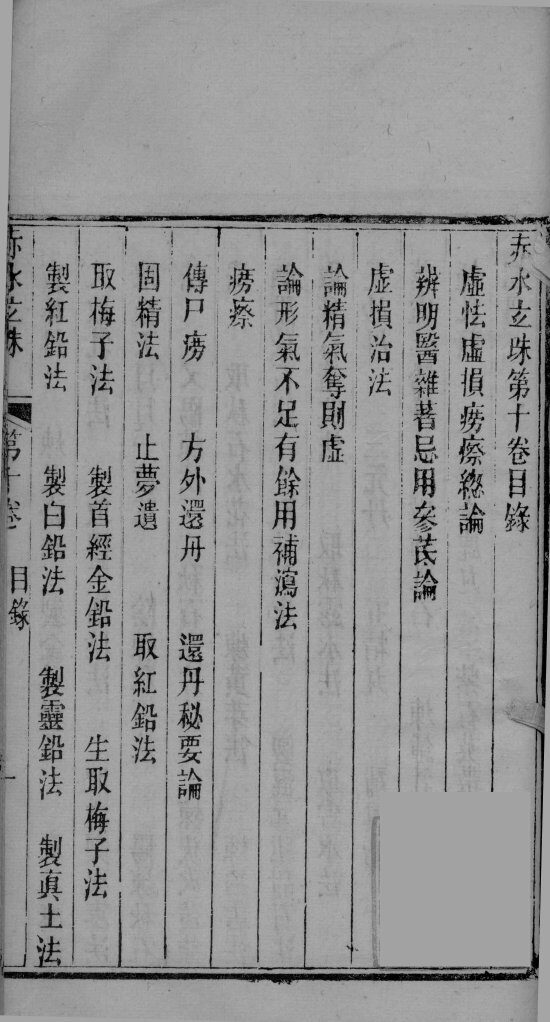 赤水玄珠第十卷目錄
虛怯虛損癆瘵總論
辨明醫雜著忌用參芪論
虛損治法
論精氣奪則虛
論形氣不足有餘用補瀉法
癆瘵
傳尸癆 方外還丹 還丹秘要論
固精法 止夢遺 取紅鉛法
取梅子法 製首經金鉛法 生取梅子法
製紅鉛法 製白鉛法 製靈鉛法 製真土法
赤水玄珠 第十卷 目錄 一